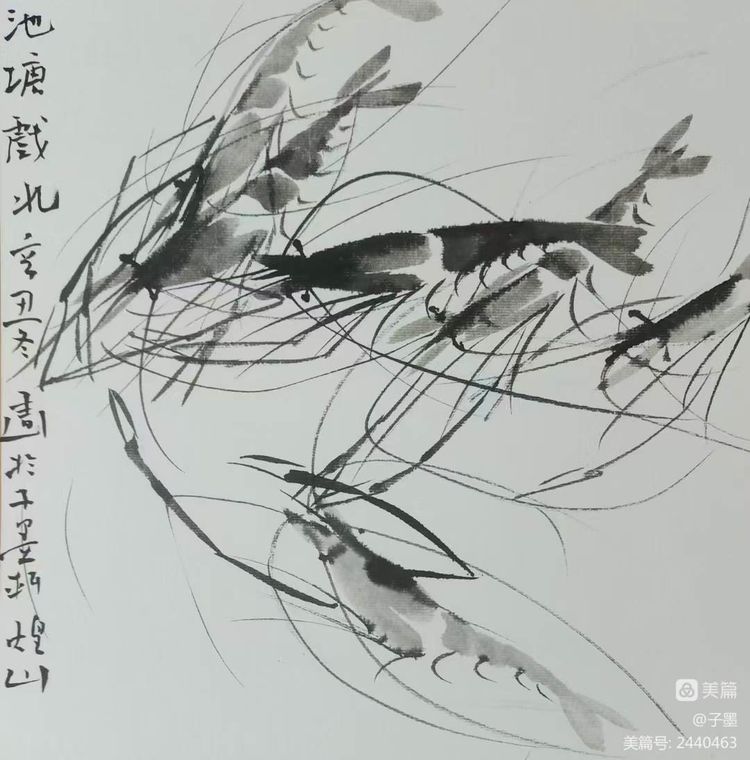 池塘戲水辛丑冬畫於子墨轩煌山
美篇
@子墨
美篇号: 2440463